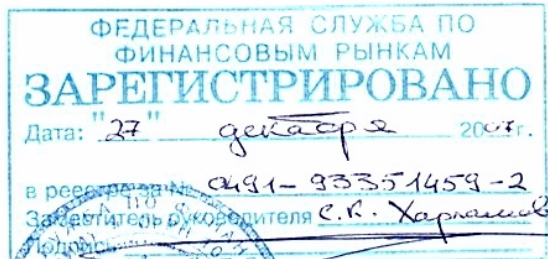 ФЕДЕРАЛЬНАЯ СЛУЖБА ПО
ФИНАНСОВЫМ РЫНКАМ
ЗАРЕГИСТРИРОВАНО
Дата: "27" декабря 2007г.
в реестре за № 0491-93351459-2
Заместитель руководителя С.К. Харламов
Подпись